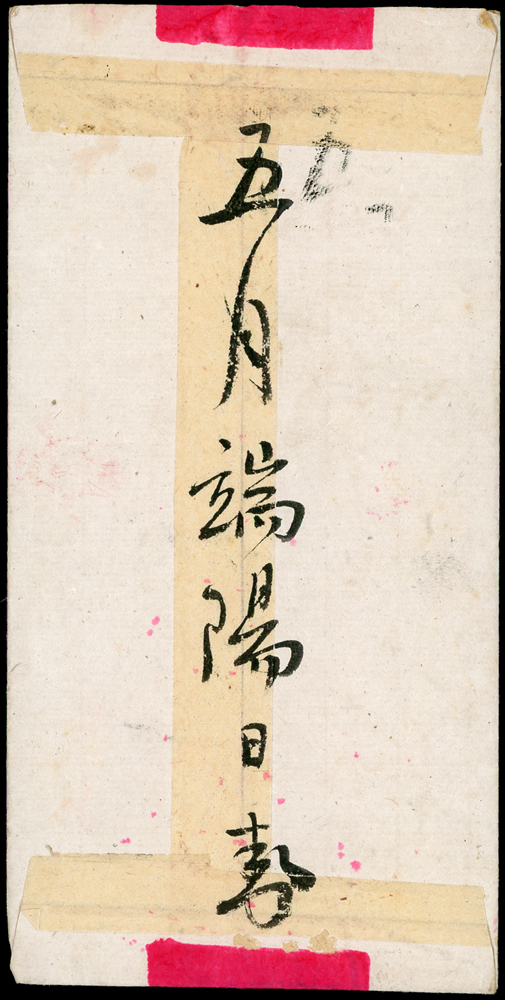 五月端陽日